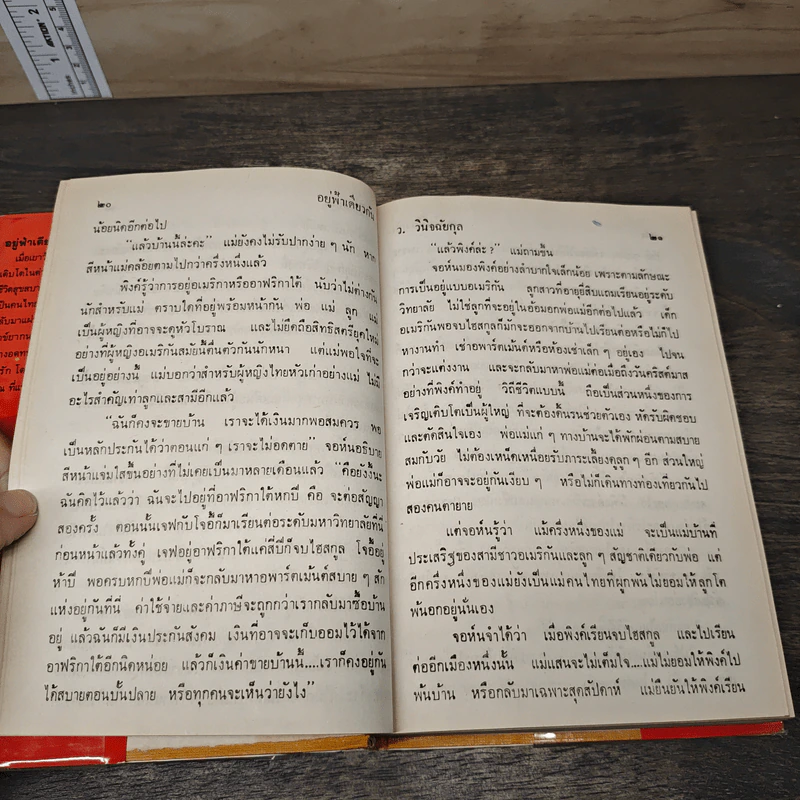 ๒๐
อยู่ฟ้าเดียวกัน
น้อยนิดอีกต่อไป
"แล้วบ้านนี้ล่ะคะ" แม่ยังคงไม่รับปากง่าย ๆ นัก หาก
สีหน้าแม่คล้อยตามไปกว่าครึ่งหนึ่งแล้ว
พิงค์รู้ว่าการอยู่อเมริกาหรืออาฟริกาใต้ นับว่าไม่ต่างกัน
นักสำหรับแม่ ตราบใดที่อยู่พร้อมหน้ากัน พ่อ แม่ ลูก แม่
เป็นผู้หญิงที่อาจจะดูหัวโบราณ และไม่ยึดถือสิทธิสตรียุคใหม่
อย่างที่ผู้หญิงอเมริกันสมัยนี้ตื่นตัวกันนักหนา แต่แม่พอใจที่จะ
เป็นอยู่อย่างนี้ แม่บอกว่าสำหรับผู้หญิงไทยหัวเก่าอย่างแม่ ไม่มี
อะไรสำคัญเท่าลูกและสามีอีกแล้ว
"ฉันก็คงจะขายบ้าน เราจะได้เงินมากพอสมควร พอ
เป็นหลักประกันได้ว่าตอนแก่ ๆ เราจะไม่อดตาย" จอห์นอธิบาย
สีหน้าแจ่มใสขึ้นอย่างที่ไม่เคยเป็นมาหลายเดือนแล้ว "คือยังงี้นะ
ฉันคิดไว้แล้วว่า ฉันจะไปอยู่ที่อาฟริกาใต้หกปี คือ จะต่อสัญญา
สองครั้ง ตอนนั้นเจฟกับโจอี้ก็มาเรียนต่อระดับมหาวิทยาลัยที่นี่
ก่อนหน้าแล้วทั้งคู่ เจฟอยู่อาฟริกาใต้แค่สี่ปีก็จบไฮสกูล โจอี้อยู่
ห้าปี พอครบหกปีพ่อแม่ก็จะกลับมาหาอพาร์ตเม้นต์สบาย ๆ สัก
แห่งอยู่กันที่นี่ ค่าใช้จ่ายและค่าภาษีจะถูกกว่าเรากลับมาซื้อบ้าน
อยู่ แล้วฉันก็มีเงินประกันสังคม เงินที่อาจจะเก็บออมไว้ได้จาก
อาฟริกาใต้อีกนิดหน่อย แล้วก็เงินค่าขายบ้านนี้....เราก็คงอยู่กัน
ได้สบายตอนบั้นปลาย หรือทุกคนจะเห็นว่ายังไง"
ว. วินิจฉัยกุล
๒๑
"แล้วพิงค์ล่ะ ?" แม่ถามขึ้น
จอห์นมองพิงค์อย่างลำบากใจเล็กน้อย เพราะตามลักษณะ
การเป็นอยู่แบบอเมริกัน ลูกสาวที่อายุยี่สิบแถมเรียนอยู่ระดับ
วิทยาลัย ไม่ใช่ลูกที่จะอยู่ในอ้อมอกพ่อแม่อีกต่อไปแล้ว เด็ก
อเมริกันพอจบไฮสกูลก็มักจะออกจากบ้านไปเรียนต่อหรือไม่ก็ไป
หางานทำ เช่าอพาร์ตเม้นต์หรือห้องเช่าเล็ก ๆ อยู่เอง ไปจน
กว่าจะแต่งงาน และจะกลับมาหาพ่อแม่ต่อเมื่อถึงวันคริสต์มาส
อย่างที่พิงค์ทำอยู่ วิถีชีวิตแบบนี้ ถือเป็นส่วนหนึ่งของการ
เจริญเติบโตเป็นผู้ใหญ่ ที่จะต้องดิ้นรนช่วยตัวเอง หัดรับผิดชอบ
และตัดสินใจเอง พ่อแม่แก่ ๆ ทางบ้านจะได้พักผ่อนตามสบาย
สมกับวัย ไม่ต้องเหน็ดเหนื่อยรับภาระเลี้ยงดูลูก ๆ อีก ส่วนใหญ่
พ่อแม่ก็อาจจะอยู่กันเงียบ ๆ หรือไม่ก็เดินทางท่องเที่ยวกันไป
สองคนตายาย
แต่จอห์นรู้ว่า แม้ครึ่งหนึ่งของแม่ จะเป็นแม่บ้านที่
ประเสริฐของสามีชาวอเมริกันและลูก ๆ สัญชาติเดียวกับพ่อ แต่
อีกครึ่งหนึ่งของแม่ยังเป็นแม่คนไทยที่ผูกพันไม่ยอมให้ลูกโต
พ้นอกอยู่นั่นเอง
จอห์นจำได้ว่า เมื่อพิงค์เรียนจบไฮสกูล และไปเรียน
ต่ออีกเมืองหนึ่งนั้น แม่แสนจะไม่เต็มใจ....แม่ไม่ยอมให้พิงค์ไป
พ้นบ้าน หรือกลับมาเฉพาะสุดสัปดาห์ แม่ยืนยันให้พิงค์เรียน